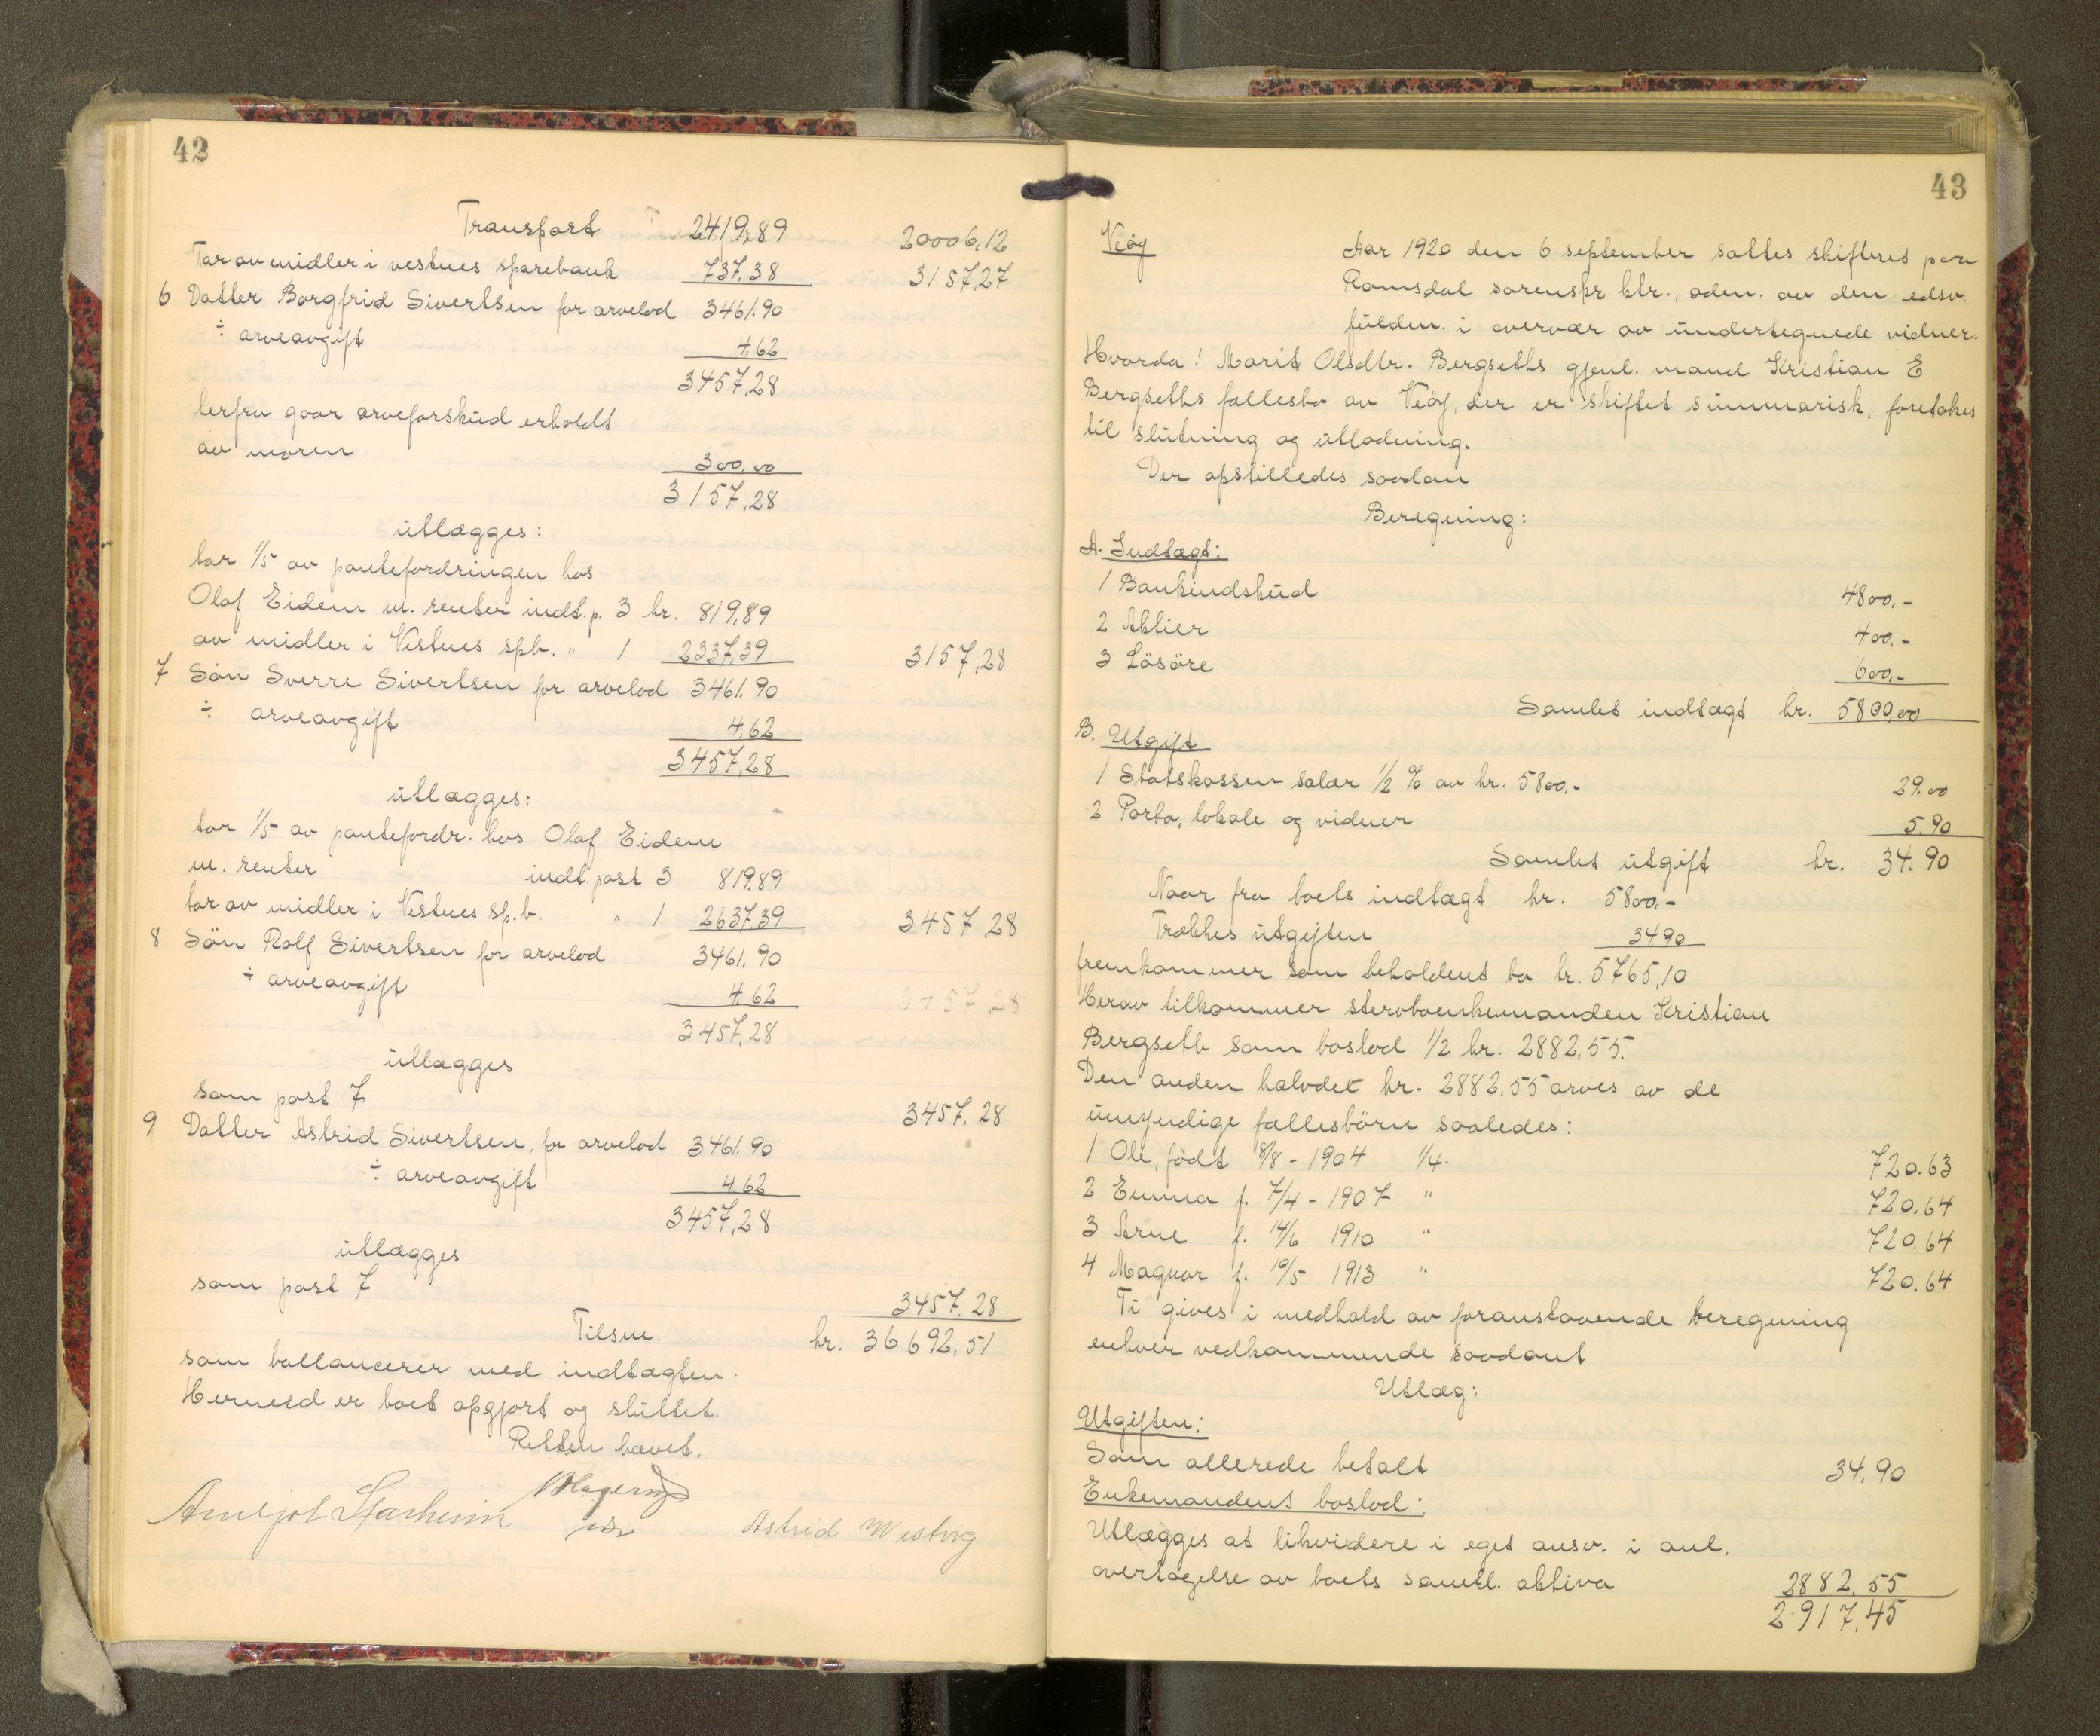 42
Transport 2419,89 20006,12
Tar av midler i vestnes sparebank 737,38 3157,27
6 Datter Borgfrid Sivertsen for arvelod 3461.90
÷ arveavgift 4.62
3457,28
herfra gaar arveforskud erholdt
av moren 300,00
3157,28
utlægges:
tar 1/5 av pantefordringen hos
Olaf Eidem m. renter indt. p. 3 kr. 819,89
av midler i Vestnes spb. " 1 2337,39 3157,28
7 Søn Sverre Sivertsen for arvelod 3461.90
÷ arveavgift 4.62
3457,28
utlægges:
tar 1/5 av pantefordr. hos Olaf Eidem
m. renter indt. post 3 819,89
tar av midler i Vestnes sp.b. " 1 2637,39 3457,28
8 Søn Rolf Sivertsen for arvelod 3461.90
÷ arveavgift 4.62
3457,28
utlægges
som post 7 3457.28
9 Datter Astrid Sivertsen, for arvelod 3461.90
÷ arveavgift 4.62
3457,28
utlægges
som post 7 3457.28
Tilsm. kr. 36692,51
som ballancerer med indtægten.
Hermed er boet opgjort og sluttet.
Retten hævet.
Astrid Mestvig
43
Veøy
Aar 1920 den 6 september sattes skifteret paa
Romsdal sorenskr ktr., adm. av den edsv.
fuldm. i overvær av undertegnede vidner.
Hvorda! Marit Olsdtr. Bergseths gjenl. mand Kristian E
Bergseths fællesbo av Veøy, der er skiftet summarisk, foretokes
til slutning og utlodning.
Der opstilledes saadan
Beregning:
A. Indtægt:
1 Bankindskud 4800.-
2 Aktier 400.-
3 Løsøre 600.-
Samlet indtægt kr. 5800,00
B. Utgift
1 Statskassen salær 1/2 % av kr. 5800.- 29.00
2 Porto, lokale og vidner 5.90
Samlet utgift kr. 34.90
Naar fra boets indtægt kr. 5800.-
Trækkes utgiften 34.90
fremkommer som beholdent bo kr. 5765,10
Herav tilkommer stervboenkemanden Kristian
Bergseth som boslod 1/2 kr. 2882,55.
Den anden halvdel kr. 2882,55 arves av de
umyndige fællesbørn saaledes:
1 Ole, født 8/8 - 1904 1/4. 720.63
2 Emma f. 7/4 - 1907 " 720.64
3 Arne f. 14/6 1910 " 720.64
4 Magnar f. 10/5 1913 " 720.64
Ti gives i medhold av foranstaaende beregning
enhver vedkommende saadant
Utlæg:
Utgiften:
Som allerede betalt 34.90
Enkemandens boslod:
Utlægges at likvidere i eget ansv. i anl.
overtagelse av boets samtl. aktiva 2882,55
2917,45